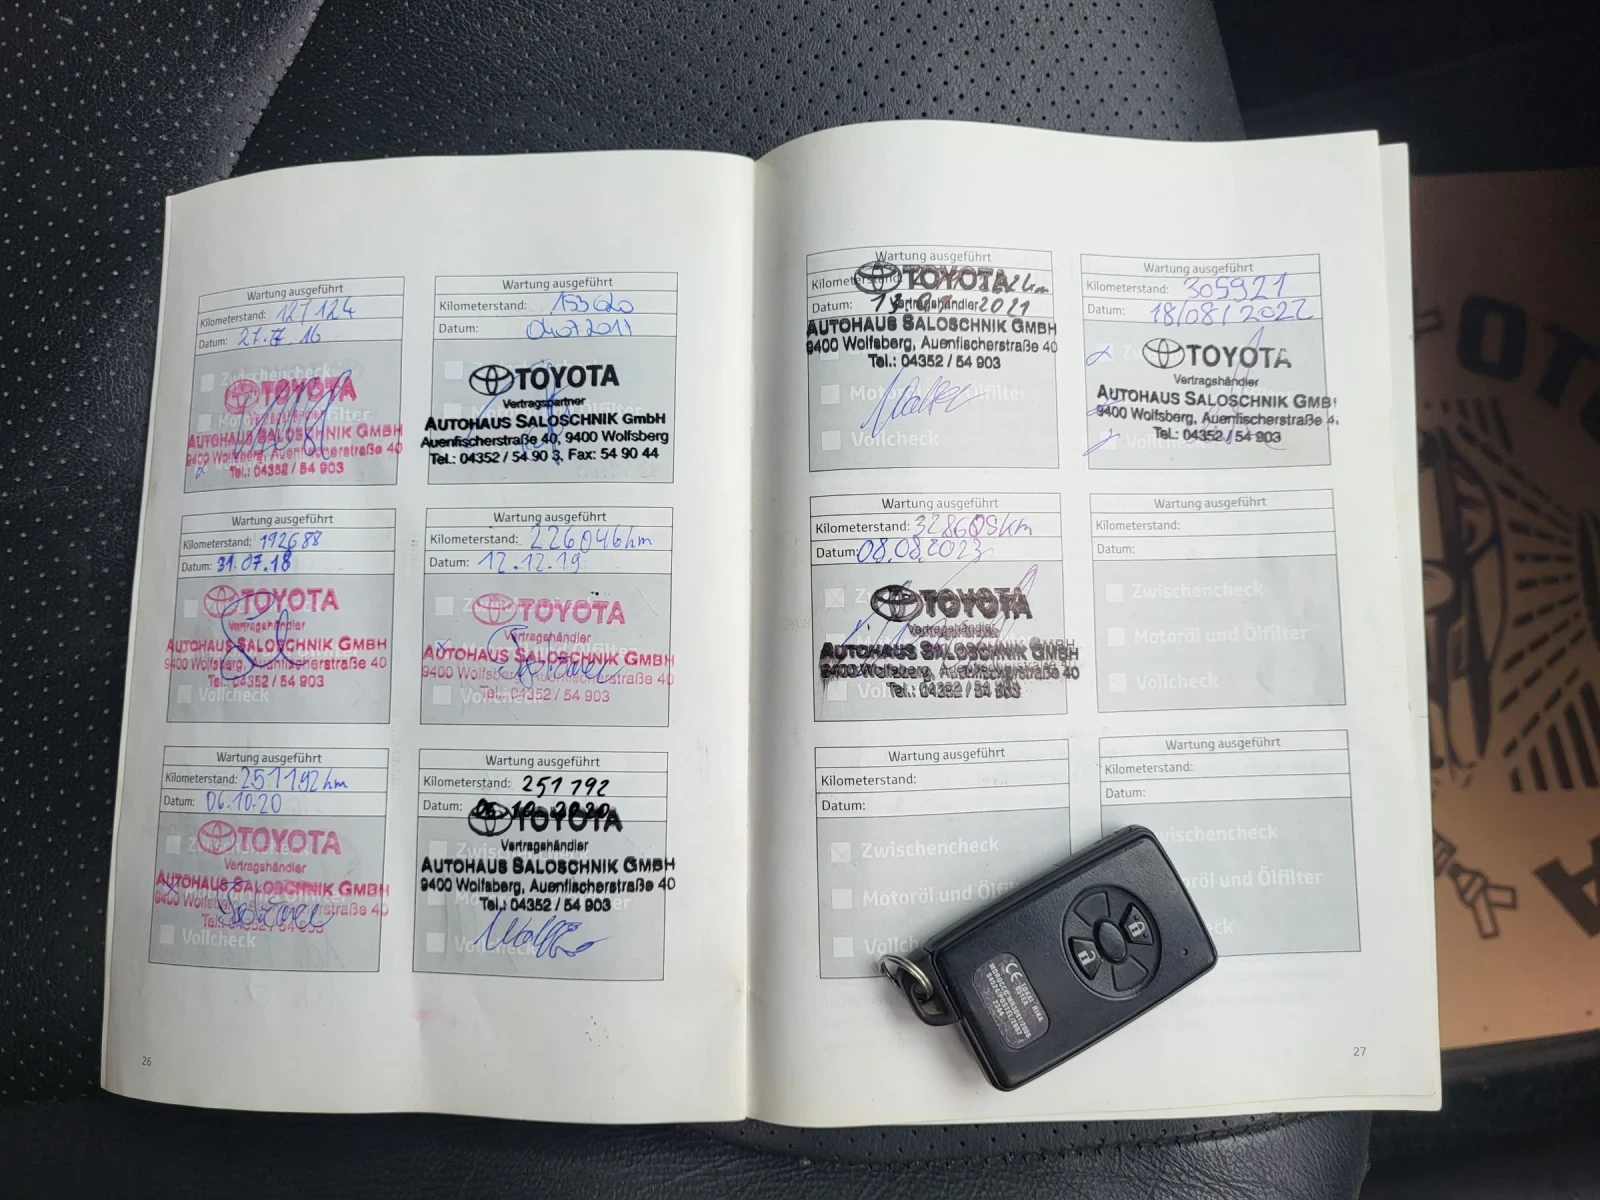 Wartung ausgeführt
Kilometerstand: 127124
Datum: 27. 16
Zwischencheck
TOYOTA
Vertragshändler
AUTOHAUS SALOSCHNIK GMBH
9400 Wolfsberg, Auenfischerstraße 40
Tel.: 04352 / 54 903
Wartung ausgeführt
Kilometerstand:
Datum:
TOYOTA
Vertragspartner
AUTOHAUS SALOSCHNIK GmbH
Auenfischerstraße 40, 9400 Wolfsberg
Tel.: 04352 / 54 90 3, Fax: 54 90 44
Wartung ausgeführt
Kilometerstand: 192688
Datum: 31.07.18
TOYOTA
Vertragshändler
AUTOHAUS SALOSCHNIK GMBH
9400 Wolfsberg, Auenfischerstraße 40
Tel.: 04352 / 54 903
Vollcheck
Wartung ausgeführt
Kilometerstand: 226046km
Datum: 12.12.19
TOYOTA
Vertragshändler
AUTOHAUS SALOSCHNIK GMBH
9400 Wolfsberg, Auenfischerstraße 40
Tel.: 04352 / 54 903
Vollcheck
Wartung ausgeführt
Kilometerstand: 251192km
Datum: 06.10.20
TOYOTA
Vertragshändler
AUTOHAUS SALOSCHNIK GMBH
9400 Wolfsberg, Auenfischerstraße 40
Tel.: 04352 / 54 903
Vollcheck
Wartung ausgeführt
Kilometerstand: 251192
Datum: 06 10 2020
TOYOTA
Vertragshändler
AUTOHAUS SALOSCHNIK GMBH
9400 Wolfsberg, Auenfischerstraße 40
Tel.: 04352 / 54 903
Vollcheck
26
Wartung ausgeführt
Kilometerstand
Datum: 2021
TOYOTA
Vertragshändler
AUTOHAUS SALOSCHNIK GMBH
9400 Wolfsberg, Auenfischerstraße 40
Tel.: 04352 / 54 903
Motoröl und Ölfilter
Vollcheck
Wartung ausgeführt
Kilometerstand: 305921
Datum: 18/08/2022
TOYOTA
Vertragshändler
AUTOHAUS SALOSCHNIK GMBH
9400 Wolfsberg, Auenfischerstraße 4
Tel.: 04352 / 54 903
Vollcheck
Wartung ausgeführt
Kilometerstand: 328609km
Datum: 08.08.2023
TOYOTA
Vertragshändler
AUTOHAUS SALOSCHNIK GMBH
9400 Wolfsberg, Auenfischerstraße 40
Tel.: 04352 / 54 903
Wartung ausgeführt
Kilometerstand:
Datum:
Zwischencheck
Motoröl und Ölfilter
Vollcheck
Wartung ausgeführt
Kilometerstand:
Datum:
Zwischencheck
Motoröl und Ölfi
Vollcheck
Wartung ausgeführt
Kilometerstand:
Datum:
wischencheck
oröl und Ölfilter
check
27
CE
TOKAI RIKA
MOROCCO